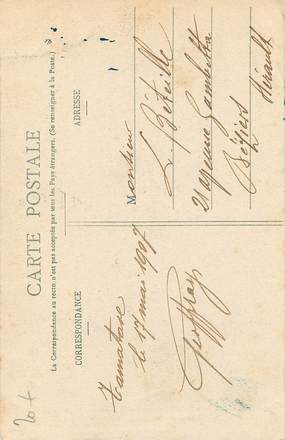 CARTE POSTALE
La Correspondance au recto n'est pas acceptée par tous les Pays étrangers. (Se renseigner à la Poste.)
CORRESPONDANCE
ADRESSE
Tamatave
le 17 mai 1907
Geoffray
Monsieur
L. Béteille
21 avenue Gambetta
Béziers
Hérault
20 f